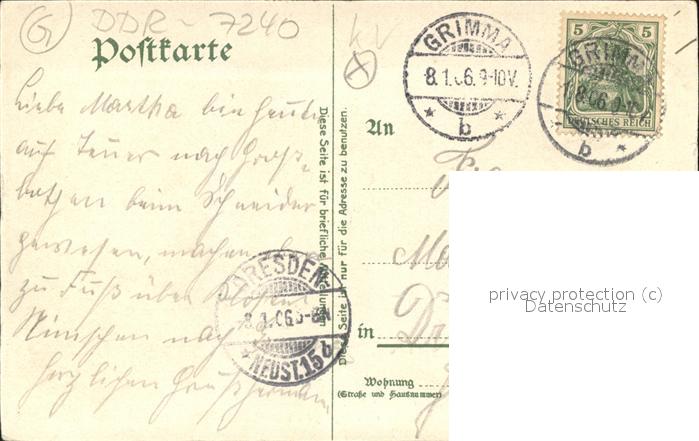 G DDR - 7240
Postkarte
Liebe Martha bin heute
auf Teuer nach Groß-
bothen beim Schneider
gewesen, machen
zu Fuß über Kloster
Nimschen nach
herzlichen Gruß Hermann
Diese Seite ist für briefliche Mitteilungen
Diese Seite ist nur für die Adresse zu benutzen.
GRIMMA
8.1.06.9-10V.
* b *
5 5
DEUTSCHES REICH
GRIMMA
b *
An
in
Wohnung
(Straße und Hausnummer)
DRESDEN
8.1.06 5-6N
* NEUST.15 b
privacy protection (c)
Datenschutz